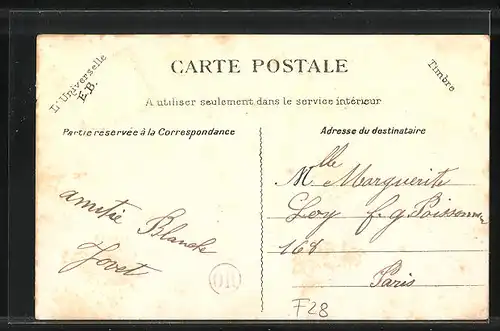 L'Universelle
E.B.
CARTE POSTALE
Timbre
A utiliser seulement dans le service intérieur
Partie réservée à la Correspondance
Adresse du destinataire
amitié Blanche
Jovet
Mlle Marguerite
Loy f.g Poissonnr
168
Paris
OR
F28